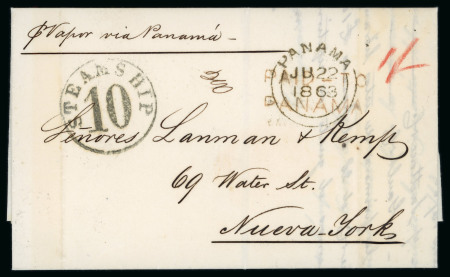 pr Vapor via Panamá
STEAMSHIP
10
PANAMA
JU 22
1863
PAID TO
PANAMA
1/-
Señores Lanman & Kemp
69 Water St.
Nueva-York